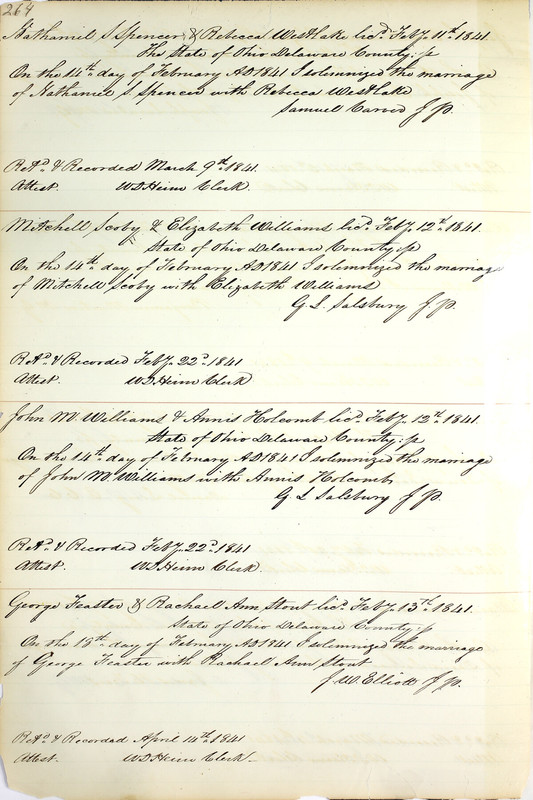 264
Nathaniel S Spencer & Rebecca Westlake licd. Feby. 11th. 1841.
The State of Ohio Delaware County: ss
On the 14th. day of February AD1841 I solemnized the marriage
of Nathaniel S Spencer with Rebecca Westlake
Samuel Carver J. P.
Retd. & Recorded March 9th. 1841.
Attest. W.D. Heim Clerk.
Mitchell Scoby & Elizabeth Williams licd. Feby. 12th. 1841.
State of Ohio Delaware County: ss
On the 14th. day of February AD1841 I solemnized the marriage
of Mitchell Scoby with Elizabeth Williams
G. L. Salsbury J. P.
Retd. & Recorded Feby. 22d. 1841
Attest. W.D. Heim Clerk
John M. Williams & Annis Holcomb licd. Feby. 12th. 1841.
State of Ohio Delaware County: ss
On the 14th. day of February AD1841 I solemnized the marriage
of John M. Williams with Annis Holcomb
G. L Salsbury J. P.
Retd. & Recorded Feby. 22d. 1841
Attest. W.D. Heim Clerk.
George Feaster & Rachael Ann Stout licd. Feby. 13th. 1841.
State of Ohio Delaware County: ss
On the 18th. day of February AD1841 I solemnized the marriage
of George Feaster with Rachael Ann Stout
J. W. Elliott J. P.
Retd. & Recorded April 14th. 1841
Attest. W.D. Heim Clerk.